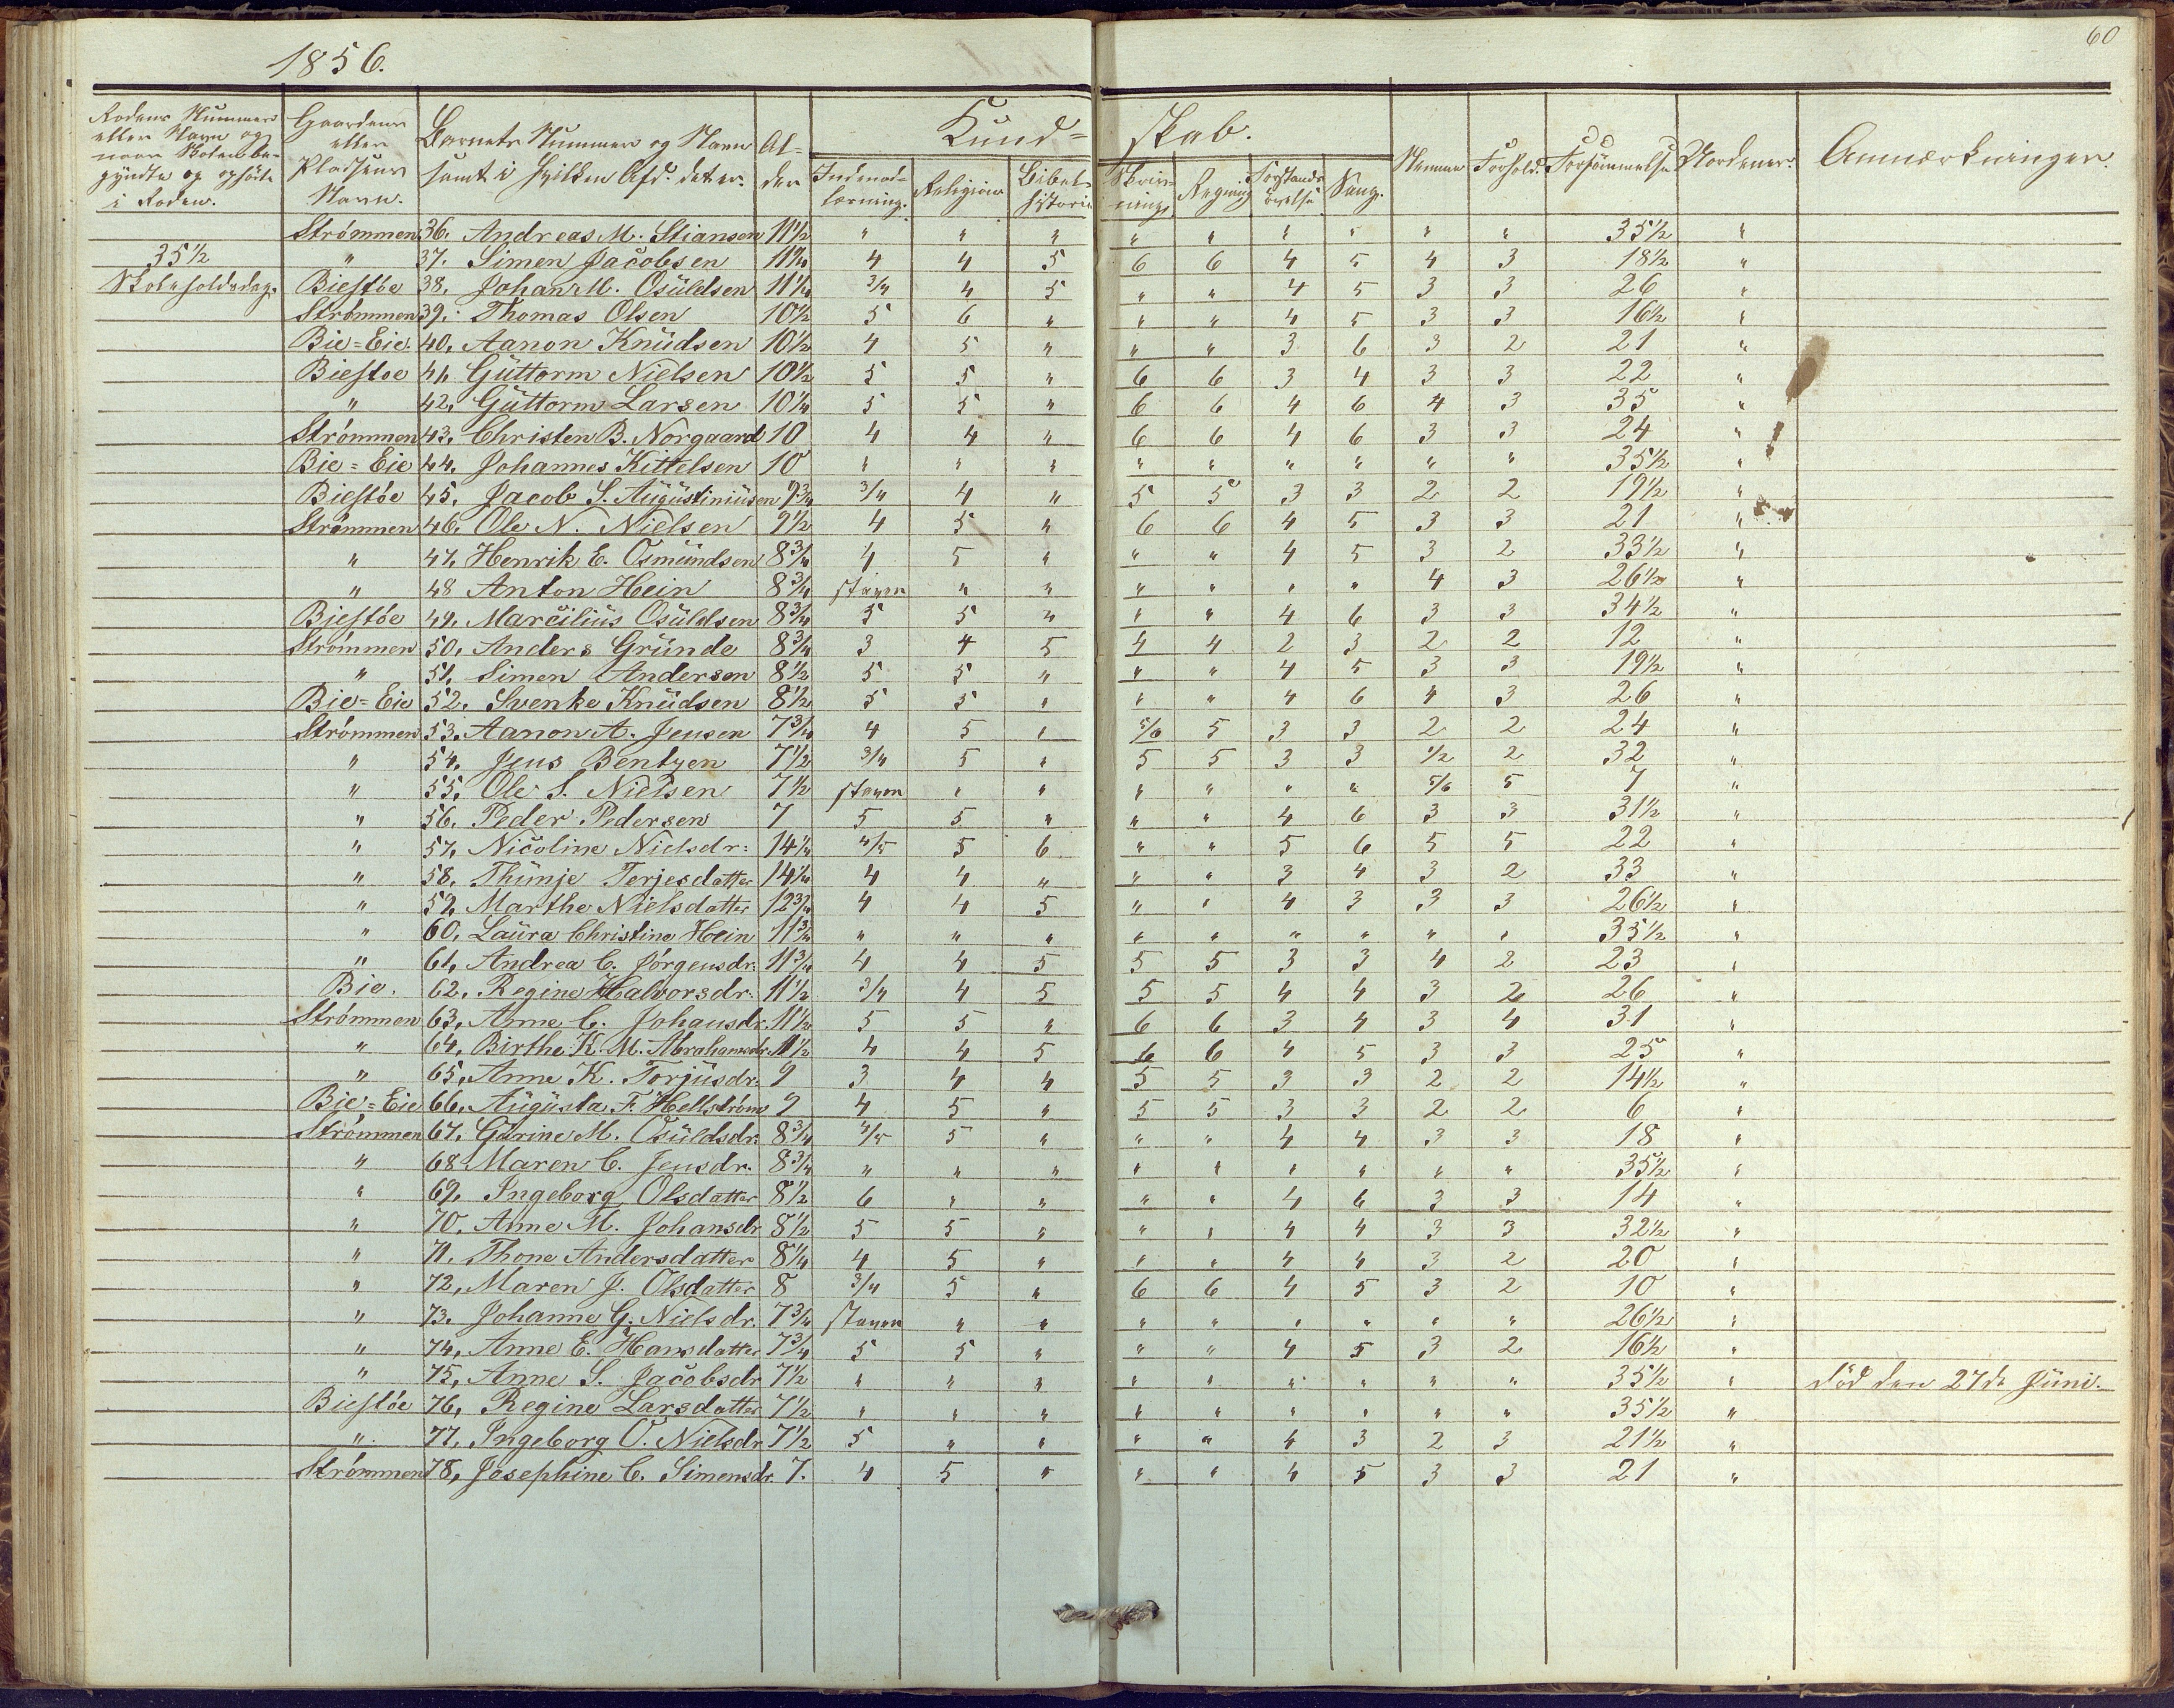 60
1856.
Rodens Nummer eller Navn og naar Skolen begyndte og ophörte i Roden.
Gaardens eller Pladsens Navn.
Barnets Nummer og Navn samt i hvilken Afd. det er.
Alder
Kundskab.
Indenadlæsning. Religion Bibelhistorie Skrivning Regning Forstandsövelse Sang.
Nemme Forhold. Forsömmelse Anmærkninger.
Strømmen 36. Andreas M. Stiansen 11½ " " " " " " " " " 35½ "
35½ " 37. Simen Jacobsen 11¼ 4 4 5 6 6 4 5 4 3 18½ "
Skoleholdsdag. Biestøe 38. Johan M. Osuldsen 11¼ 3/4 4 5 " " 4 5 3 3 26 "
Strømmen 39. Thomas Olsen 10½ 5 6 " " " 4 5 3 3 16½ "
Bie=Eie. 40. Aanon Knudsen 10½ 4 5 " " " 3 6 3 2 21 "
Biestøe 41. Guttorm Nielsen 10½ 5 5 " 6 6 3 4 3 3 22 "
" 42. Guttorm Larsen 10¼ 5 5 " 6 6 4 6 4 3 35 "
Strømmen 43. Christen B. Norgaard 10 4 4 " 6 6 4 6 3 3 24 "
Bie=Eie 44. Johannes Kittelsen 10 " " " " " " " " " 35½ "
Biestøe 45. Jacob S. Augustiniusen 9¾ 3/4 4 " 5 5 3 3 2 2 19½ "
Strømmen 46. Ole N. Nielsen 9½ 4 5 " 6 6 4 5 3 3 21 "
" 47. Henrik E. Osmundsen 8¾ 4 5 " " " 4 5 3 2 33½ "
" 48 Anton Hein 8¾ staver " " " " " " 4 3 26½ "
Biestøe 49. Marcilius Osuldsen 8¾ 5 5 " " " 4 6 3 3 34½ "
Strømmen 50. Anders Grunde 8¾ 3 4 5 4 4 2 3 2 2 12 "
" 51. Simen Andersen 8½ 5 5 " " " 4 5 3 3 19½ "
Bie=Eie 52. Svenke Knudsen 8½ 5 5 " " " 4 6 4 3 26 "
Strømmen 53. Aanon A. Jensen 7¾ 4 5 " 5/6 5 3 3 2 2 24 "
" 54. Jens Bentzen 7½ 3/4 5 " 5 5 3 3 1/2 2 32 "
" 55. Ole S. Nielsen 7½ staver " " " " " " 5/6 5 7 "
" 56. Peder Pedersen 7 5 5 " " " 4 6 3 3 31½ "
" 57. Nicoline Nielsdr: 14¼ 4/5 5 6 " " 5 6 5 5 22 "
" 58. Thünje Terjesdatter 14¼ 4 4 " " " 3 4 3 2 33 "
" 59. Marthe Nielsdatter 12¾ 4 4 5 " " 4 3 3 3 26½ "
" 60. Laura Christine Hein 11¾ " " " " " " " " " 35½ "
" 61. Andrea C. Jörgensdr. 11¾ 4 4 5 5 5 3 3 4 2 23 "
Bie. 62. Regine Halvorsdr. 11½ 3/4 4 5 5 5 4 4 3 2 26 "
Strømmen 63. Anne C. Johansdr. 11½ 5 5 " 6 6 3 4 3 4 31 "
" 64. Birthe K. M. Abrahamsdr. 11½ 4 4 5 6 6 4 5 3 3 25 "
" 65. Anne K. Torjusdr. 9 3 4 4 5 5 3 3 2 2 14½ "
Bie=Eie 66. Augusta F. Hellstrøm 9 4 5 " 5 5 3 3 2 2 6 "
Strømmen 67. Gurine M. Osuldsdr. 8¾ 4/5 5 " " " 4 4 3 3 18 "
" 68. Maren C. Jensdr. 8¾ " " " " " " " " " 35½ "
" 69. Ingeborg Olsdatter 8½ 6 " " " " 4 6 3 3 14 "
" 70. Anne M. Johansdr 8½ 5 5 " " " 4 4 3 3 32½ "
" 71. Thone Andersdatter 8¼ 4 5 " " " 4 4 3 2 20 "
" 72. Maren J. Olsdatter 8 3/4 5 " 6 6 4 5 3 2 10 "
" 73. Johanne G. Nielsdr. 7¾ staver " " " " " " " " 26½ "
" 74. Anne E. Hansdatter 7¾ 5 5 " " " 4 5 3 2 16½ "
" 75. Anne S. Jacobsdr 7½ " " " " " " " " " 35½ " död den 27de Juni.
Biestøe 76. Regine Larsdatter 7½ " " " " " " " " " 35½ "
" 77. Ingeborg O. Nielsdr 7½ 5 " " " " 4 3 2 3 21½ "
Strømmen 78. Josephine C. Simensdr. 7. 4 5 " " " 4 5 3 3 21 "